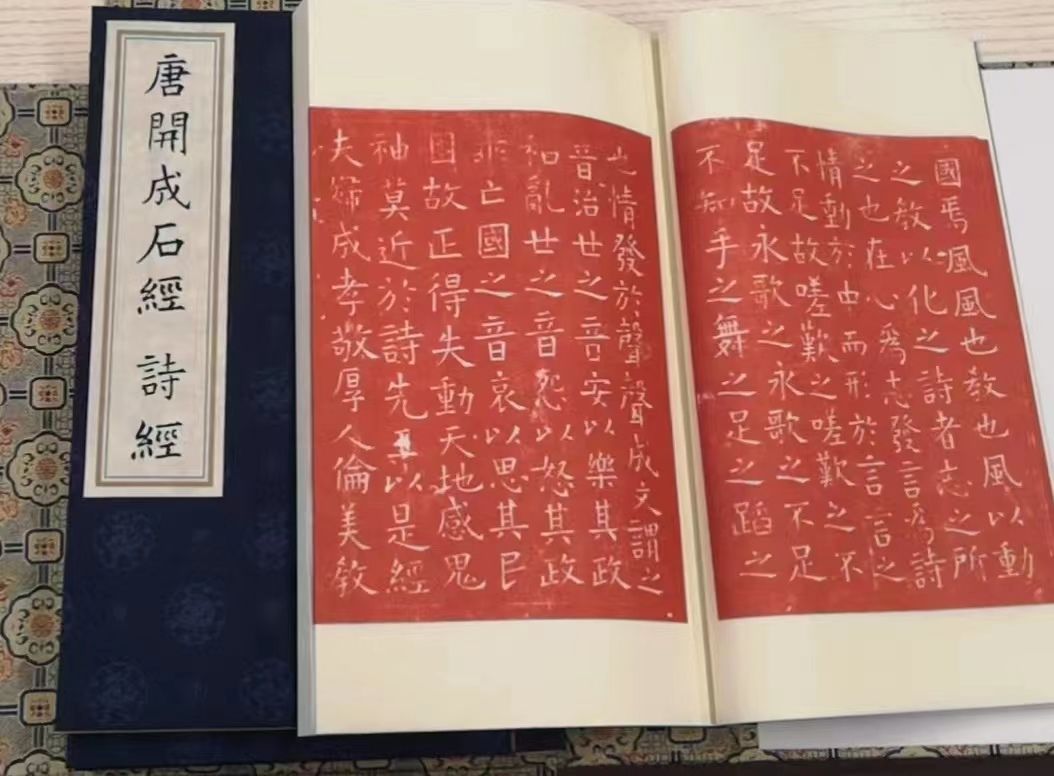 唐開成石經 詩經
國焉風風也教也風以動
之教以化之詩者志之所
之也在心爲志發言爲詩
情動於中而形於言言之
不足故嗟歎之嗟歎之不
足故永歌之永歌之不足
不知手之舞之足之蹈之
也情發於聲聲成文謂之
音治世之音安以樂其政
和亂世之音怨以怒其政
乖亡國之音哀以思其民
困故正得失動天地感鬼
神莫近於詩先王以是經
夫婦成孝敬厚人倫美教